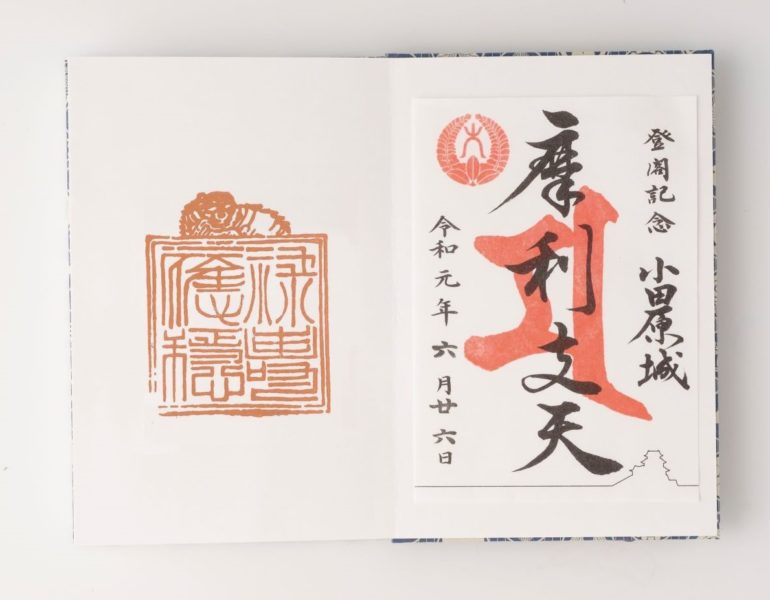 登閣記念
小田原城
摩利支天
令和元年六月廿六日
祿壽
應穩